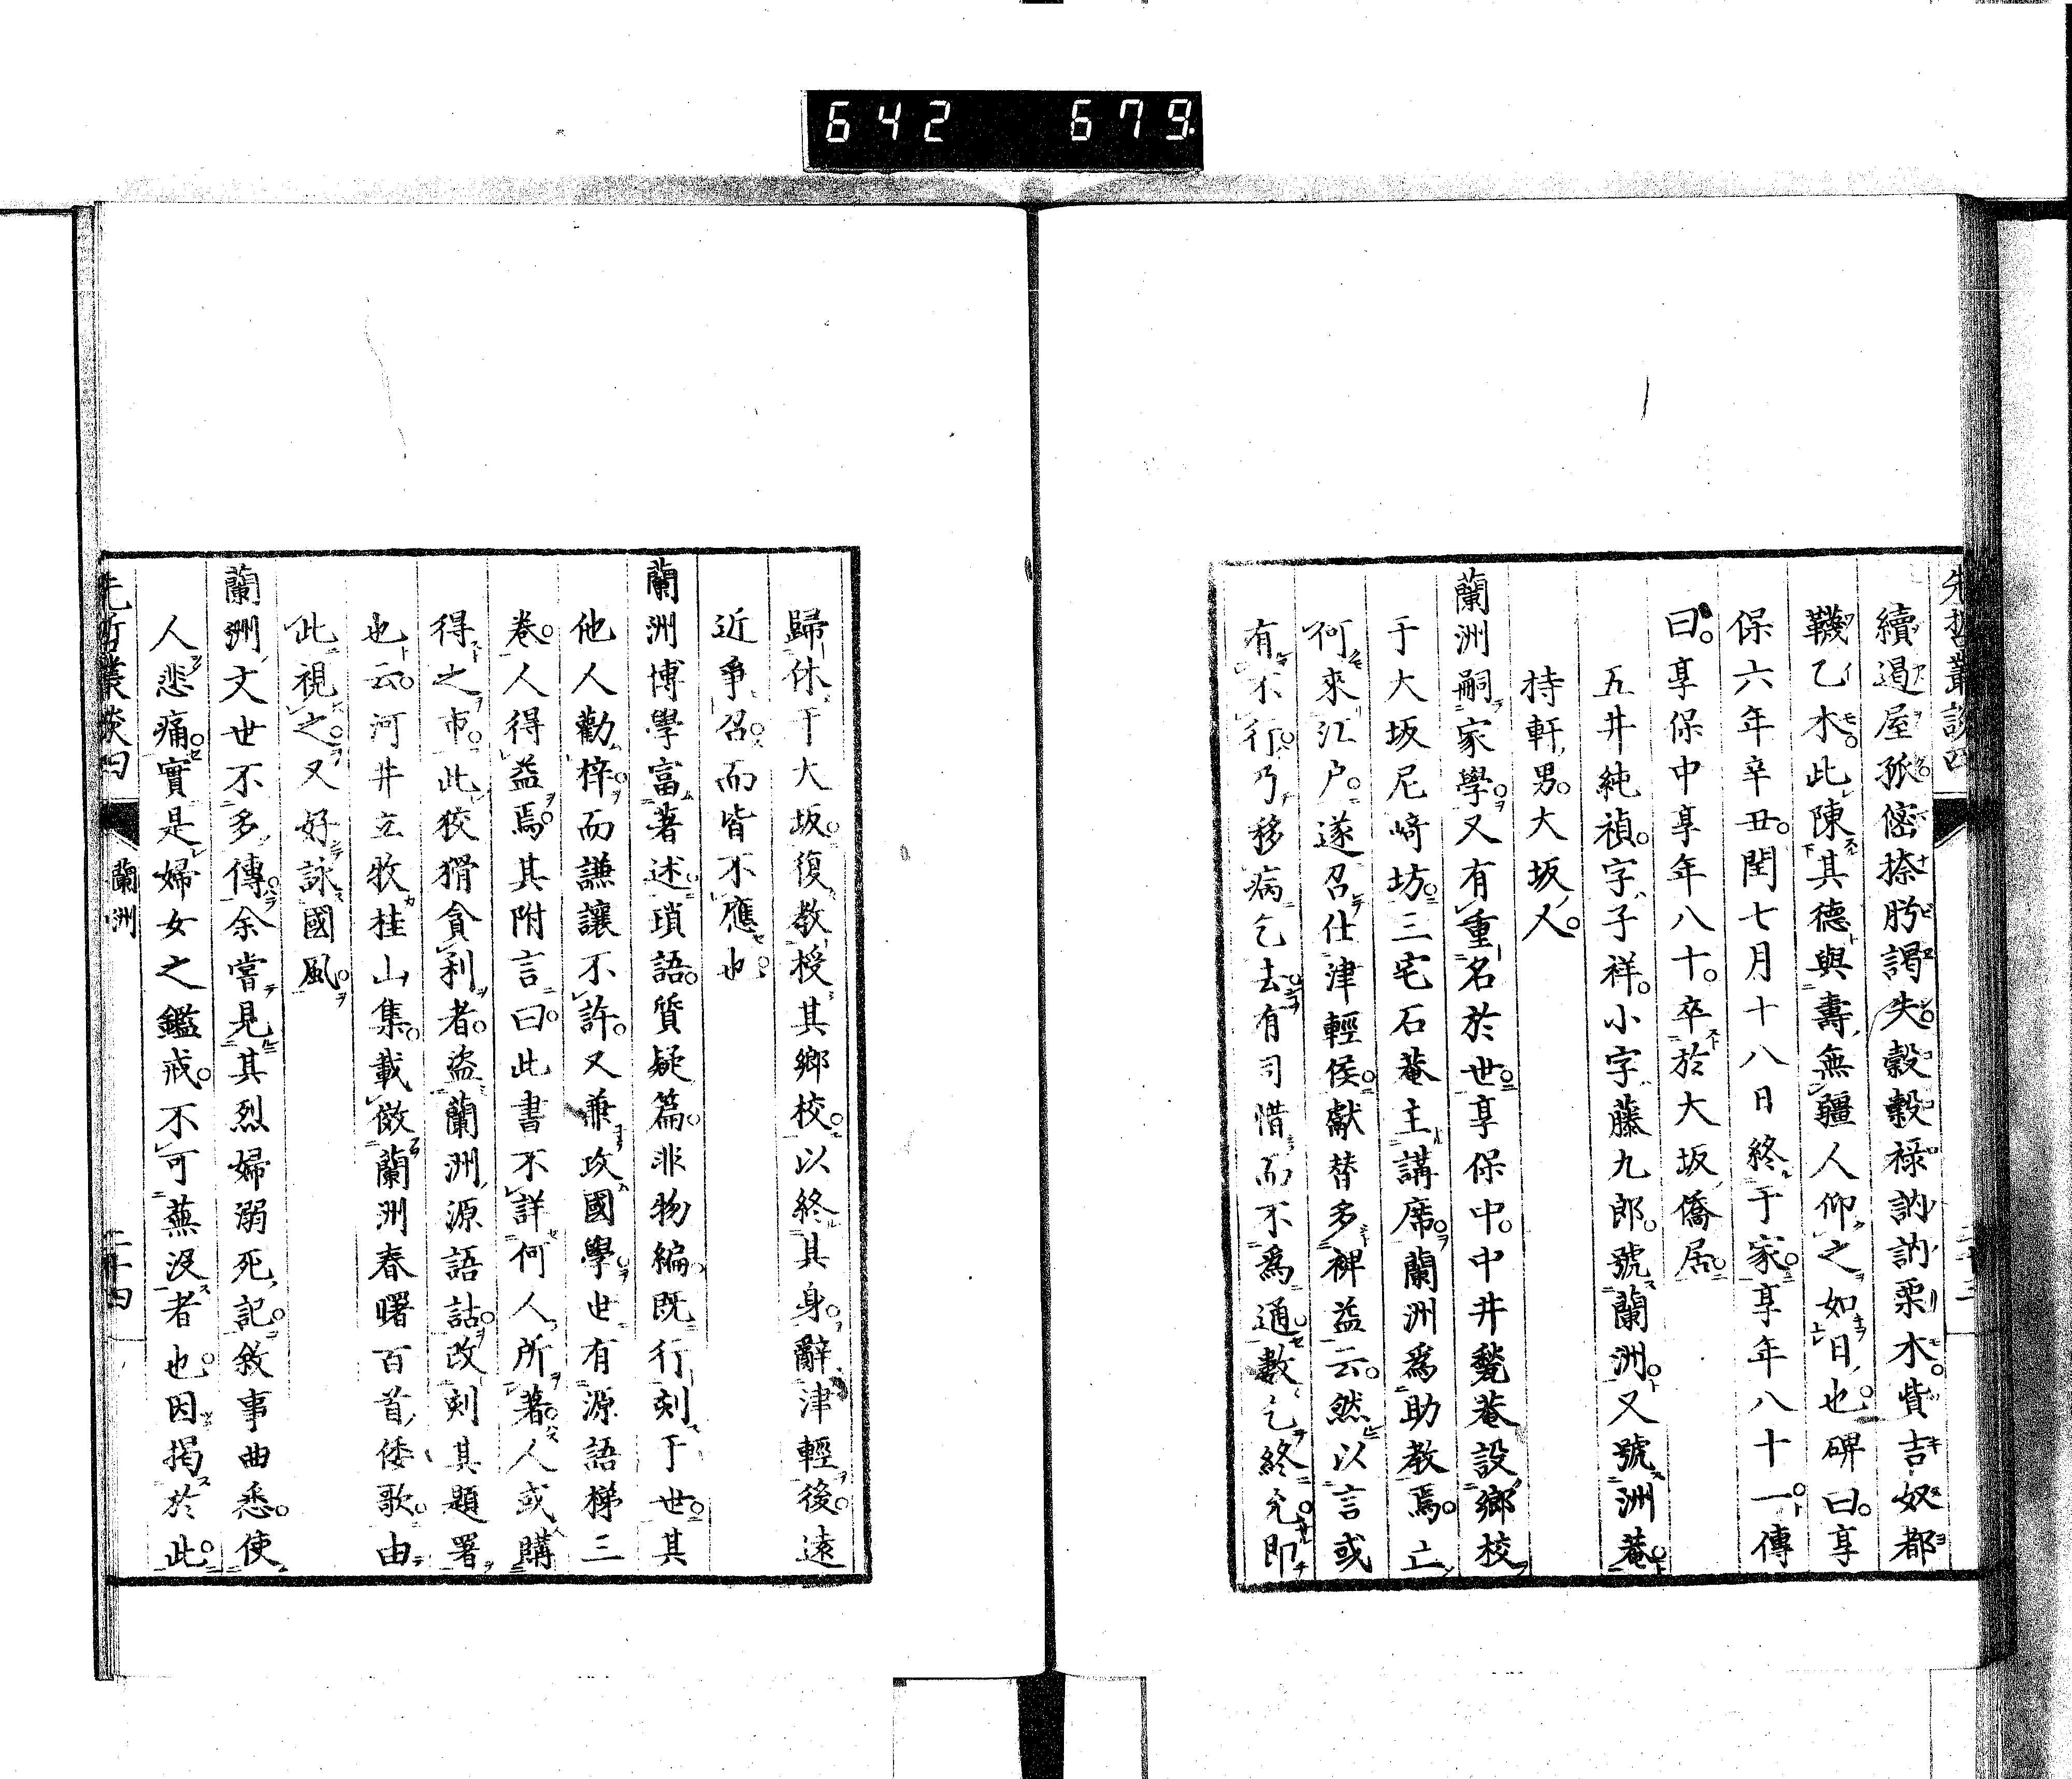 642 679.
先哲叢談四
續遏屋孤僿捺肹謁失穀穀祿訥訥栗木貲吉奴都
韈乙木此陳其德與壽無疆人仰之如日也碑曰享
保六年辛丑閏七月十八日終于家享年八十一傳
曰享保中享年八十卒於大坂僑居
五井純禎字子祥小字藤九郎號蘭洲又號洲菴
持軒男大坂人
蘭洲嗣家學又有重名於世享保中中井甃菴設鄉校
于大坂尼崎坊三宅石菴主講席蘭洲爲助教焉亡
何來江戶遂召仕津輕侯獻替多裨益云然以言或
有不行乃移病乞去有司惜而不爲通數乞終允即
歸休于大坂復教授其鄉校以終其身辭津輕後遠
近爭召而皆不應也
蘭洲博學富著述瑣語質疑篇非物編既行刻于世其
他人勸梓而謙讓不許又兼攻國學世有源語梯三
卷人得益焉其附言曰此書不詳何人所著人或購
得之市此狡猾貪利者盜蘭洲源語詁改刻其題署
也云河井立牧桂山集載倣蘭洲春曙百首倭歌由
此視之又好詠國風
蘭洲文世不多傳余嘗見其烈婦溺死記敘事曲悉使
人悲痛實是婦女之鑑戒不可蕪沒者也因揭於此
先哲叢談四 蘭洲 二十四